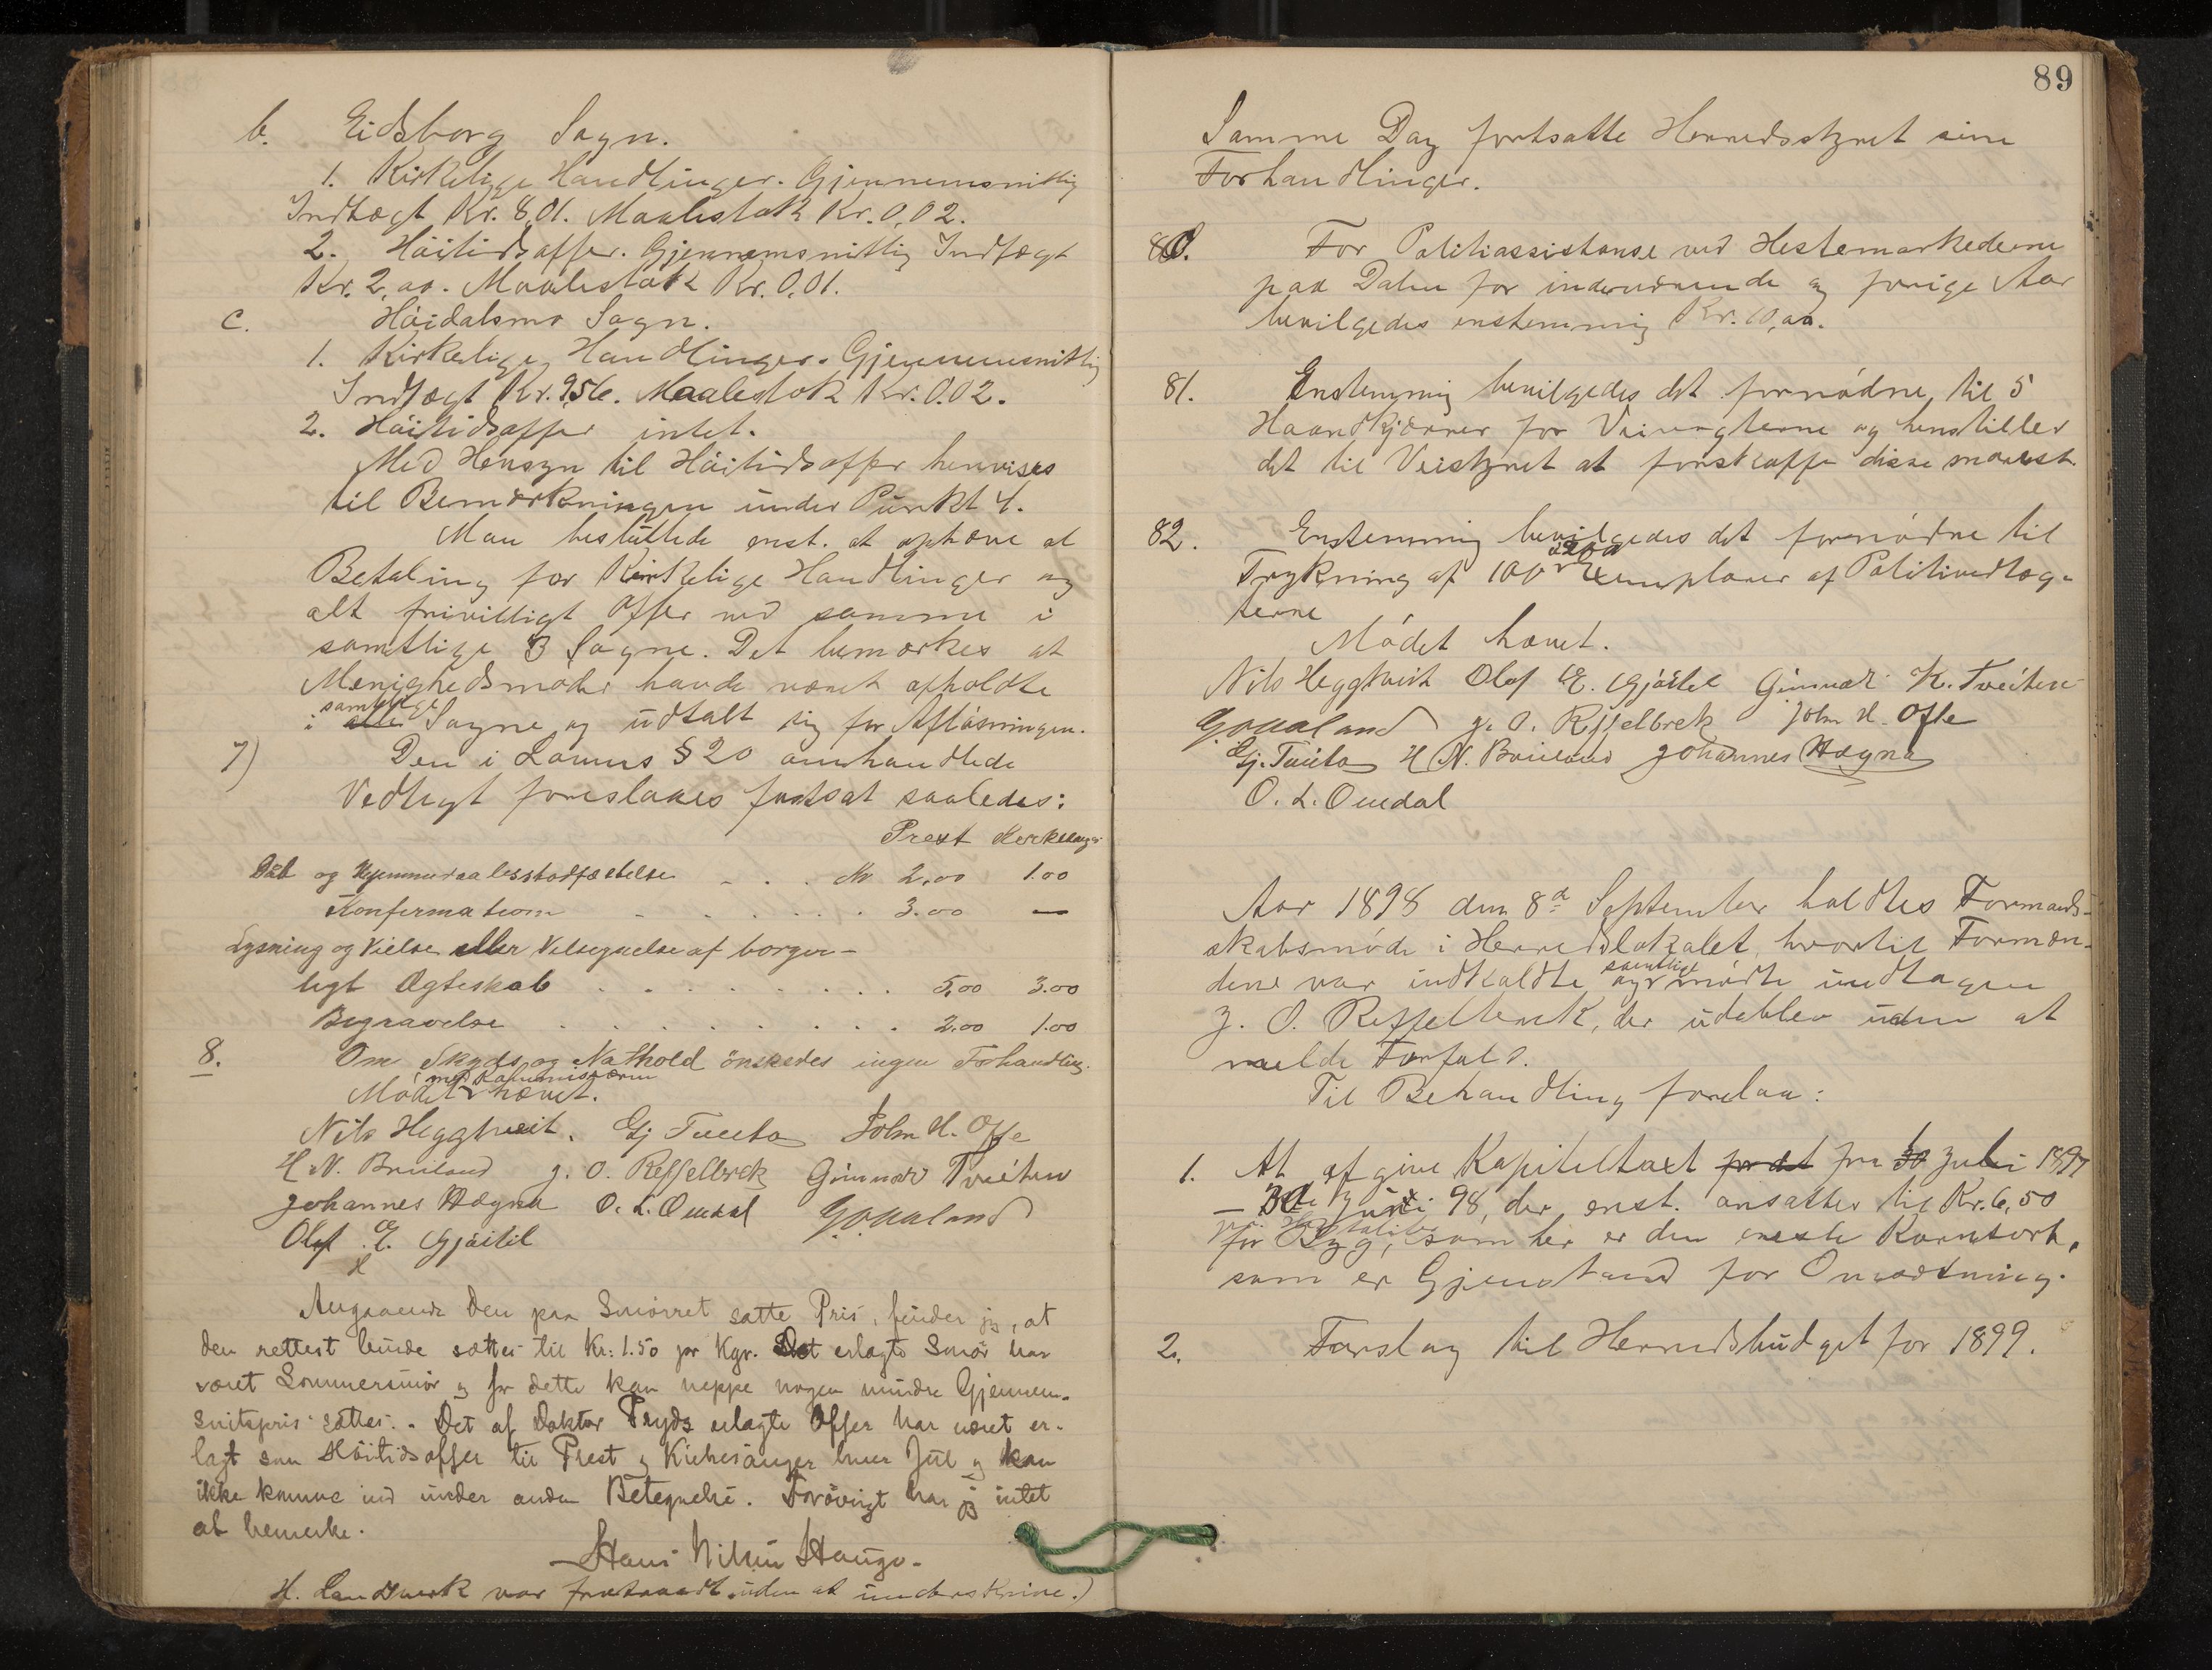 b. Eidsborg Sogn.
1. Kirkelige Handlinger. Gjennemsnittlig
Indtægt Kr. 8,01. Maalestok Kr. 0,02.
2. Höitidsoffer. Gjennemsnittlig Indtægt
Kr. 2,00. Maalestok Kr. 0,01.
c. Höidalsmo Sogn.
1. Kirkelige Handlinger. Gjennemsnittlig
Indtægt Kr. 9,56. Maalestok Kr. 0.02.
2. Höitidsoffer intet.
Med Hensyn til Höitidsoffer henvises
til Bemærkningen under Punkt 4.
Man besluttede enst. at ophæve al
Betaling for Kirkelige Handlinger og
alt frivilligt Offer ved samme i
samtlige 3 Sogne. Det bemærkes at
Menighedsmöder havde været afholdte
i samtlige Sogne og udtalt sig for Aflösningen.
7) Den i Lovens § 20 omhandlede
Vedtegt foreslaaes fastsat saaledes:
Prest Kirkesanger
Dåb og Hjemmedaabsstadfæstelse . . . Kr 2.00 1.00
Konfirmation . . . . . . 3.00 —
Lysning og Vielse eller Velsignelse af borger-
ligt Ægteskab . . . . . . . . 5.00 3.00
Begravelse . . . . . . . . . 2.00 1.00
8. Om Skyds og Nathold önskedes ingen Forhandling.
Mödet med Kommissæren hævet.
Nils Heggtveit. Gj Tveito John H. Ofte
H. N. Bruland J. O. Reffelbrek Gunnar Tveiten
Johannes Hægna O. L. Omdal G. Haaland
Olef E. Gjöitil
x
Angaaende den paa Smörret satte Pris, finder jeg, at
den rettest burde sættes til Kr: 1.50 pr Kgr. Det erlagte Smör har
været Sommersmör og for dette kan neppe nogen mindre Gjennem-
snitspris sættes. - Det af Doktor Tryds erlagte Offer har været er-
lagt som Höitidsoffer til Prest og Kirkesanger hver Jul og kan
ikke komme ind under anden Betegnelse. Forövrigt har jeg intet
at bemerke.
Hans Nilsen Hauge.
H. Landsverk var fratraadt uden at underskrive.)
89
Samme Dag fortsatte Herredsstyret sine
Forhandlinger.
80. For Politiassistanse ved Hestemarkederne
paa Dalen for indeværende og forrige Aar
bevilgedes enstemmig Kr. 10,00.
81. Enstemmig bevilgedes det fornödne til 5
Haandkjærrer for Veivogterne og henstilles
det til Veistyret at forskaffe disse snarest.
82. Enstemmig bevilgedes det fornödne til
Trykning af 100 Exemplarer af Politivedtæg-
terne
Mödet hævet.
Nils Heggtveit Olef E. Gjöitil Gunnar K. Tveiten
G. Haaland J. O. Reffelbrek John H. Ofte
Gj. Tveito H N. Bruland Johannes Hægna
O. L. Omdal
Aar 1898 den 8d September holdtes Formand-
skabsmöde i Herredslokalet, hvortil Formæn-
dene var indkaldte og samtlige mödte undtagen
J. O. Reffelbrek, der udeblev uden at
melde Forfald.
Til Behandling forelaa:
1. At afgive Kapiteltaxt for det fra 1 Juli 1897
— 30te Juni 98, der enst. ansattes til Kr. 6,50
pr. Hektoliter
for Byg, som her er den eneste Kornsort,
som er Gjenstand for Omsætning.
2. Forslag til Herredsbudget for 1899.